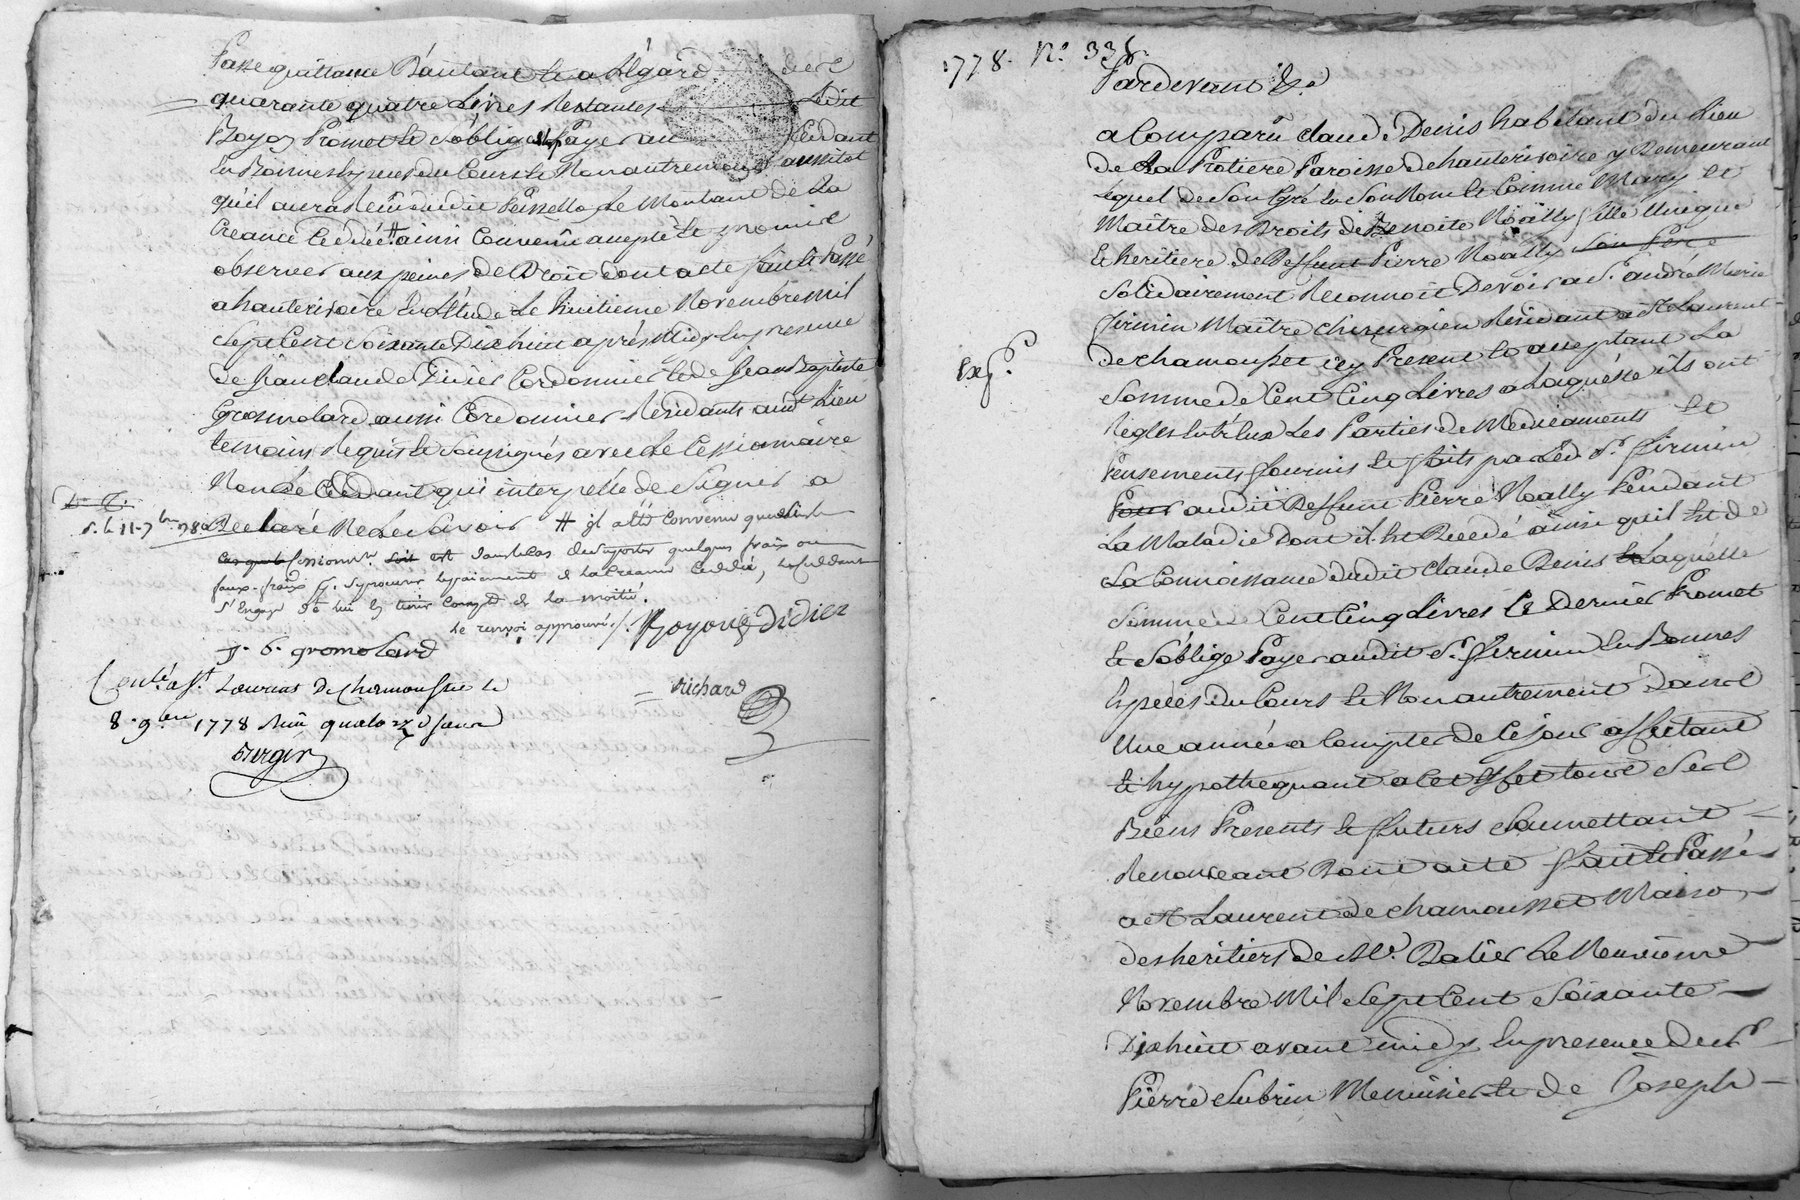 Passe quittance Dautant et a légard des
quarante quatre Livres Restantes Ledit
Boyon Promet et s'oblige Payer au Cedant
En Bonnes Especes du Cours et Non autrement aussitot
qu'il aura Reçu dudit Peissello Le Montant de La
Creance Cedée # ainsi Convenu accepté et promis
observer aux peines de Droit Dont acte fait et Passé
a hauterivoire En L'étude Le huitieme Novembre mil
sept Cent soixante Dix huit après Midy En presence
de Jean Claude Didier Cordonnier et de Jean Baptiste
Gromolard aussi Cordonnier Residants audt Lieu
temoins Requis et soussignés avec Le Cessionnaire
Non Le Cedant qui interpellé de Signer a
Declaré Ne Le savoir # il a été Convenu que
Cessionre. dans le cas de supporter quelques frais ou
faux-fraix pr. se procurer le payement de la Creance Cedée, le Cedant
s'engage de lui en tenir Compte de la moitié.
Le renvoi approuvé /. Boyon Didier
J. B. gromolard
Contlé. a St. Laurent De Chamousset le
8. 9bre 1778 Reçu quatorze s
richard
Berger
1778. No. 338.
Pardevant &a.
a Comparu claude Denis habitant du Lieu
de La Flotiere Paroisse de hauterivoire y Demeurant
Lequel de son gré En son Nom et Comme Mary et
Maitre des Droits de Benoite Noally fille Unique
et heritiere de Deffunt Pierre Noally son Pere
solidairement Reconnoit Devoir a Sr. andré Marie
firmin Maître chirurgien Residant a St Laurent
de chamousset icy Present et acceptant La
Exp.
somme de Cent Cinq Livres a Laquelle ils ont
Reglés Entr'Eux Les Parties de Medicaments et
Pensements fournis et faits par Led Sr. firmin
Pour audit Deffunt Pierre Noally Pendant
La Maladie Dont il Est Decedé ainsi qu'il Est de
La Connoissance dudit claude Denis Laquelle
somme de Cent Cinq Livres Ce Dernier Promet
et s'oblige Payer audit Sr. firmin En Bonnes
Especes du Cours et Non autrement Dans
Une année a Compter de Ce jour affectant
et hypothequant a Cet Effet tous ses
Biens Presents et futurs soumettant
Renonceant Dont acte fait et Passé
a St Laurent de chamousset Maison
des héritiers de Me. Ratier Le Neuvieme
Novembre Mil sept Cent soixante
Dix huit avant midy En presence de Sr
Pierre subrin Menuisier et de Joseph